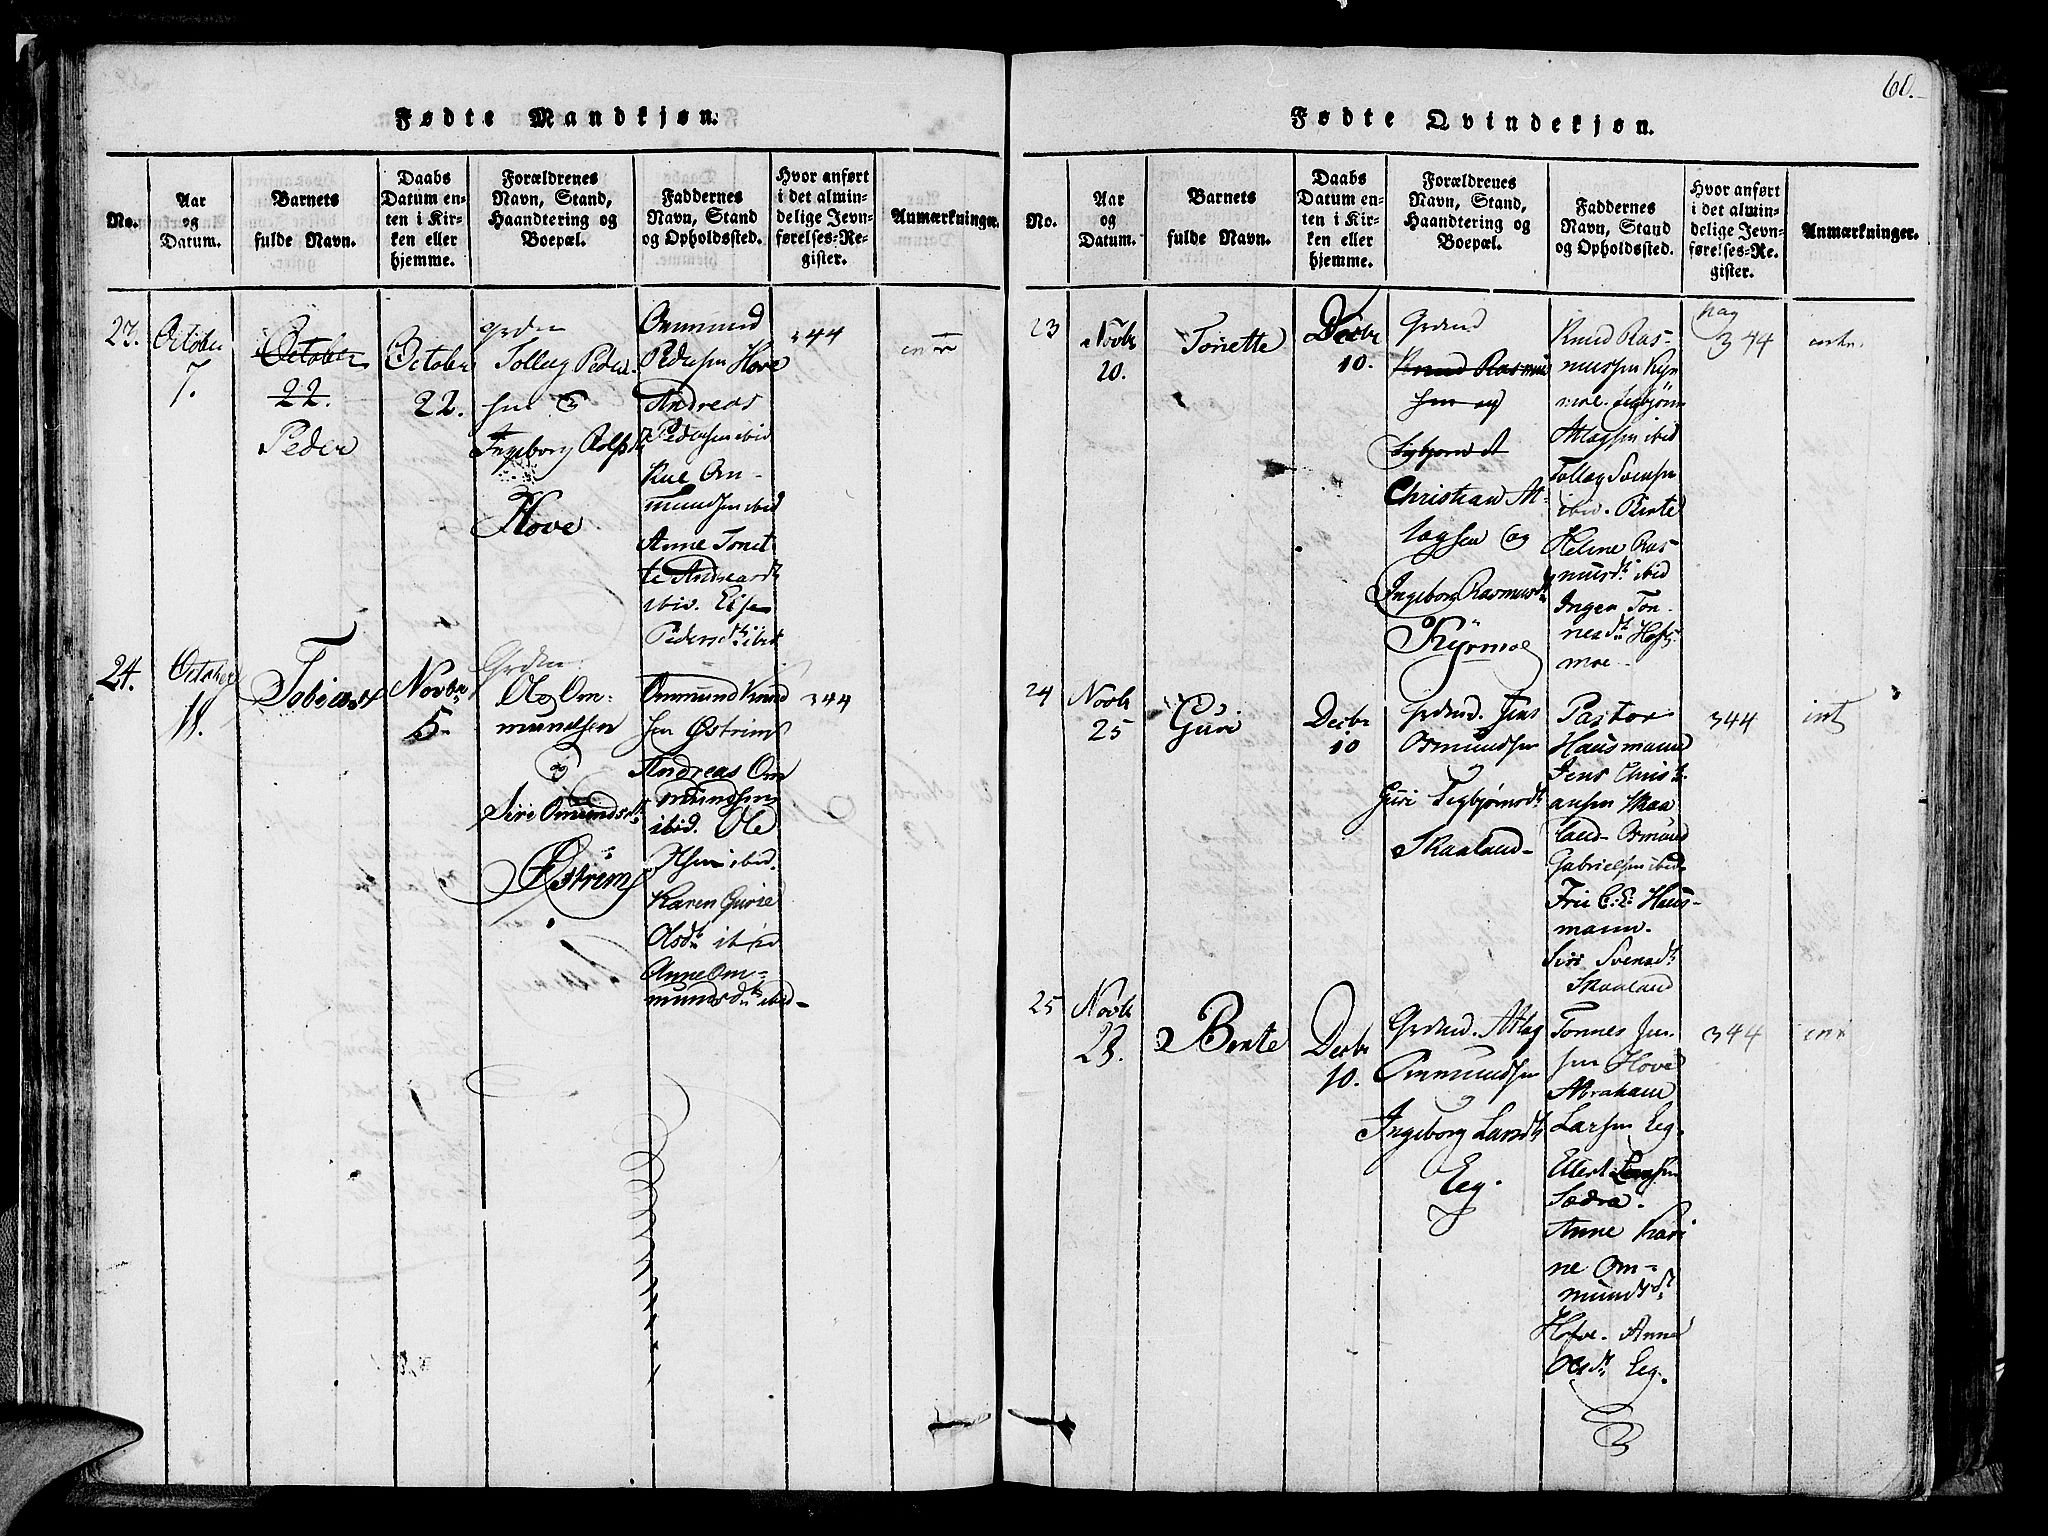 60.
Fødte Mandkjøn.
No.
Aar
og
Datum.
Barnets
fulde Navn.
Daabs
Datum en-
ten i Kir-
ken eller
hjemme.
Forældrenes
Navn, Stand,
Haandtering og
Boepæl.
Faddernes
Navn, Stand
og Opholdssted.
Hvor anført
i det almin-
delige Jevn-
førelses-Re-
gister.
Anmærkninger.
23.
October
7.
October
22.
Peder
October
22.
Tolleg Peder
sen &
Ingeborg Rolfsd
Hove
Ommund
Pedersen Hove
Andreas
Pedersen ibid
Rue Om-
mundsen ibid
Anne Tonet
te Andreasd
ibid. Else
Pedersdt ibid
344
24.
October
18.
Tobias
Novbr
5.
Ole Om-
mundsen
og
Siri Omundsd
Østrim
Ommund Knud
sen Østrim
Andreas Om
mundsen
ibid. Ole
Olsen ibid.
Karen Gurie
Olsdt ibid
Anne Om-
mundsdt ibid-
344
Fødte Qvindekjøn.
No.
Aar
og
Datum.
Barnets
fulde Navn.
Daabs
Datum en-
ten i Kir-
ken eller
hjemme.
Forældrenes
Navn, Stand,
Haandtering og
Boepæl.
Faddernes
Navn, Stand
og Opholdssted.
Hvor anført
i det almin-
delige Jevn-
førelses-Re-
gister.
Anmærkninger.
23
Novbr
20.
Tonette
Decbr
10.
Grdmd
Knud Rasmus
sen og
Christian At-
lagsen og
Ingeborg Rasmusdt
Kyrmoe
Knud Ras-
mussen Kyr
moe. Sigbjørn
Atlagsen ibid
Tollag Svensen
ibid. Bente
Heline Ras-
musdt ibid
Inger Ton-
nesdt
moe
pag
344
24
Novbr
25
Guri
Decbr
10
Grdmd. Jens
Osmundsen
Guri Sigbjørnsdt
Skaaland-
Pastor
Hausmann
Jens Christ
ansen Skaa
land- Osmund
Gabrielsen ibid
Fru C. E. Haus-
mann-
Siri Svensdt
Skaaland
344
int
25
Novbr
28.
Bente
Decbr
10.
Grdmd. Atlag
Ommundsen
Ingeborg Larsdt
Eeg.
Tonnes Jen-
sen Hove
Abraham
Larsen Eeg.
Ellert Larsen
Sædra.
Anne Kari
ne Om-
mundsdt
Hove. Anne
Olsdt Eeg.
344